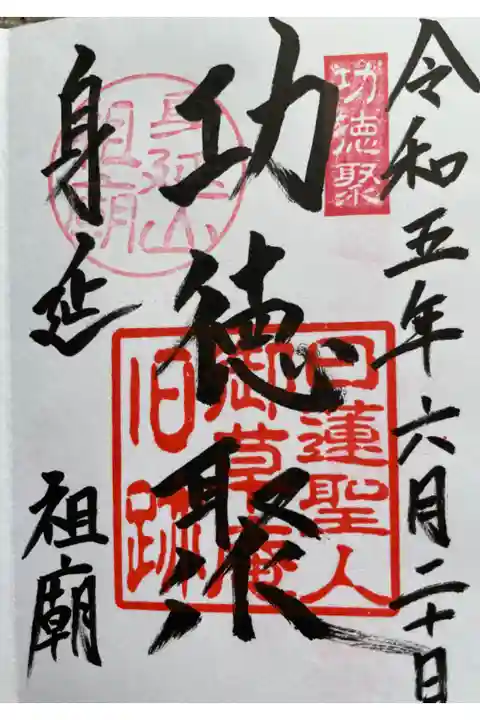 令和五年六月二十日
功徳聚
功徳聚
日蓮聖人
御草庵
旧跡
身延山
祖廟
身延
祖廟